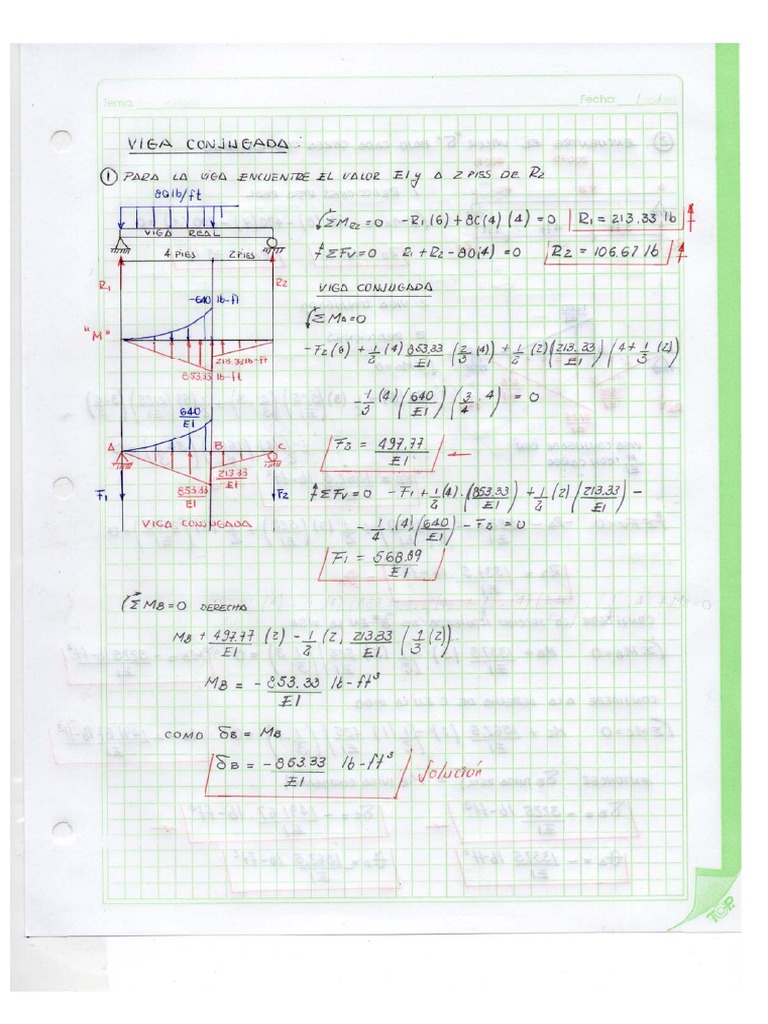 Tema:
Fecha: / /
VIGA CONJUGADA:
① PARA LA VIGA ENCUENTRE EL VALOR EI y A 2 PIES DE R2
80 lb/ft
VIGA REAL
4 PIES 2 PIES
R1 R2
-640 lb-ft
"M"
213.33 lb-ft
853.33 lb-ft
640/EI
A B C
213.33/EI
853.33/EI
F1 F2
VIGA CONJUGADA
ΣM R2 = 0 -R1(6) + 80(4)(4) = 0 R1 = 213.33 lb ↑
↑ΣFv = 0 R1 + R2 - 80(4) = 0 R2 = 106.67 lb ↑
VIGA CONJUGADA
ΣMA = 0
-F2(6) + 1/2 (4) 853.33/EI (2/3 (4)) + 1/2 (2)(213.33/EI)(4 + 1/3 (2))
-1/3 (4)(640/EI)(3/4 · 4) = 0
F2 = 497.77/EI ←
↑ΣFv = 0 -F1 + 1/2 (4) · (853.33/EI) + 1/2 (2)(213.33/EI) -
- 1/4 · (4) · (640/EI) - F2 = 0
F1 = 568.89/EI
(ΣMB = 0 DERECHA
MB + 497.77/EI (2) - 1/2 (2) 213.33/EI (1/3 (2))
MB = -853.33/EI lb-ft³
COMO δB = MB
δB = -853.33/EI lb-ft³ Solución
TOP